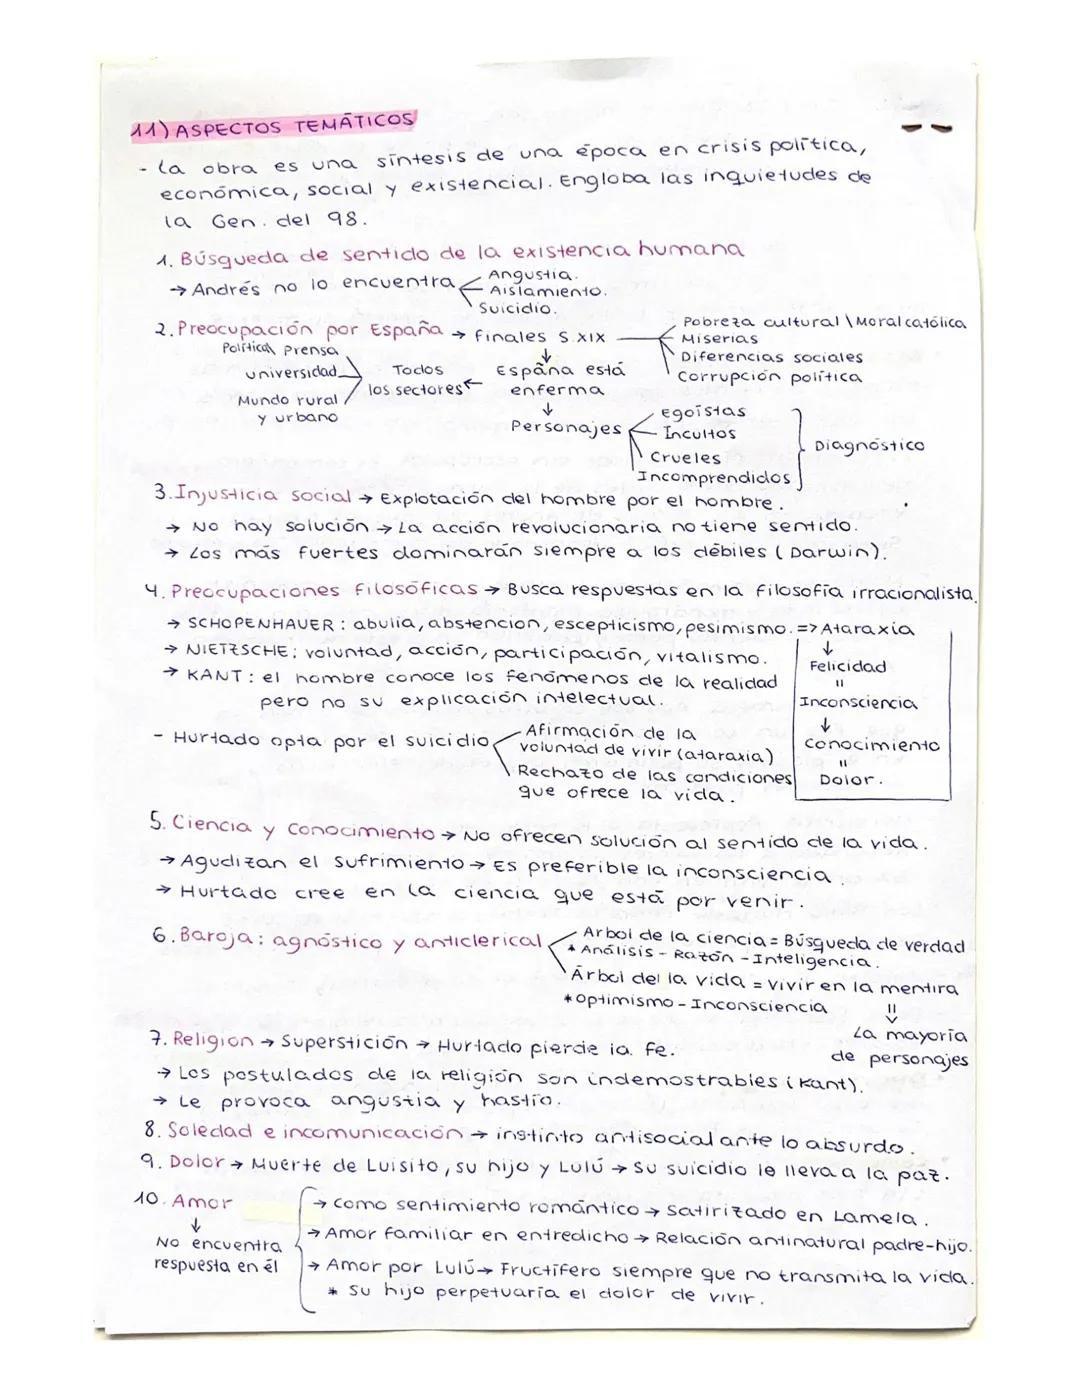 11) ASPECTOS TEMÁTICOS
- La obra es una síntesis de una época en crisis política,
económica, social y existencial. Engloba las inquietudes de
la Gen. del 98.
1. Búsqueda de sentido de la existencia humana
→ Andrés no lo encuentra
Angustia.
Aislamiento.
Suicidio.
2. Preocupación por España → finales S.XIX
Pobreza cultural \ Moral católica
Miserias
Diferencias sociales
Corrupción política
↓
España está
enferma
← Todos
los sectores
Política, Prensa
universidad
Mundo rural
y urbano
↓
Personajes
Egoístas
Incultos
Crueles
Incomprendidos
Diagnóstico
3. Injusticia social → Explotación del hombre por el hombre.
→ No hay solución → La acción revolucionaria no tiene sentido.
→ Los más fuertes dominarán siempre a los débiles (Darwin).
4. Preocupaciones filosóficas → Busca respuestas en la filosofía irracionalista.
→ SCHOPENHAUER: abulia, abstencion, escepticismo, pesimismo. => Ataraxia
→ NIETZSCHE: voluntad, acción, participación, vitalismo.
→ KANT: el hombre conoce los fenómenos de la realidad
pero no su explicación intelectual.
↓
Felicidad
=
Inconsciencia
↓
Conocimiento
=
Dolor.
- Hurtado opta por el suicidio
Afirmación de la
voluntad de vivir (ataraxia)
Rechazo de las condiciones
que ofrece la vida.
5. Ciencia y Conocimiento → No ofrecen solución al sentido de la vida.
→ Agudizan el sufrimiento → Es preferible la inconsciencia.
→ Hurtado cree en la ciencia que está por venir.
6. Baroja: agnóstico y anticlerical
Arbol de la ciencia = Búsqueda de verdad
* Análisis - Razón - Inteligencia.
Árbol de la vida = vivir en la mentira
* Optimismo - Inconsciencia
La mayoría
de personajes
7. Religion → Superstición → Hurtado pierde la fe.
→ Los postulados de la religión son indemostrables (Kant).
→ Le provoca angustia y hastío.
8. Soledad e incomunicación → instinto antisocial ante lo absurdo.
9. Dolor → Muerte de Luisito, su hijo y Lulú → Su suicidio le lleva a la paz.
10. Amor
↓
No encuentra
respuesta en él
→ como sentimiento romántico → Satirizado en Lamela.
→ Amor familiar en entredicho → Relación antinatural padre-hijo.
→ Amor por Lulú → Fructífero siempre que no transmita la vida.
* su hijo perpetuaría el dolor de vivir.